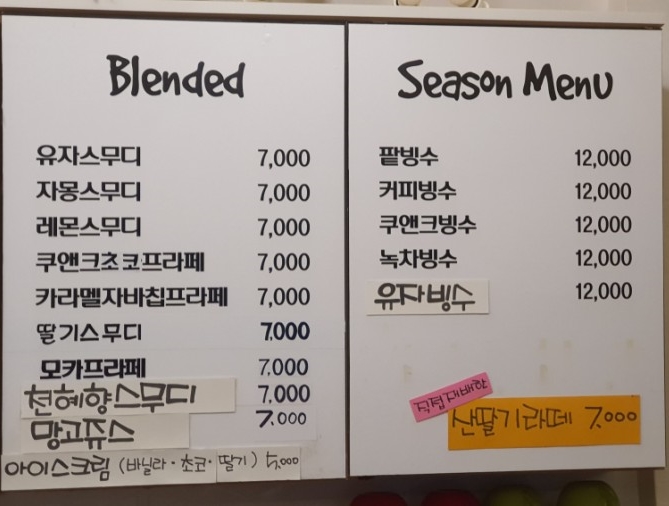 Blended
유자스무디 7,000
자몽스무디 7,000
레몬스무디 7,000
쿠앤크초코프라페 7,000
카라멜자바칩프라페 7,000
딸기스무디 7.000
모카프라페 7,000
천혜향스무디 7,000
망고쥬스 7.000
아이스크림 (바닐라·초코·딸기) 5,000
Season Menu
팥빙수 12,000
커피빙수 12,000
쿠앤크빙수 12,000
녹차빙수 12,000
유자빙수 12,000
직접재배한
산딸기라떼 7.000